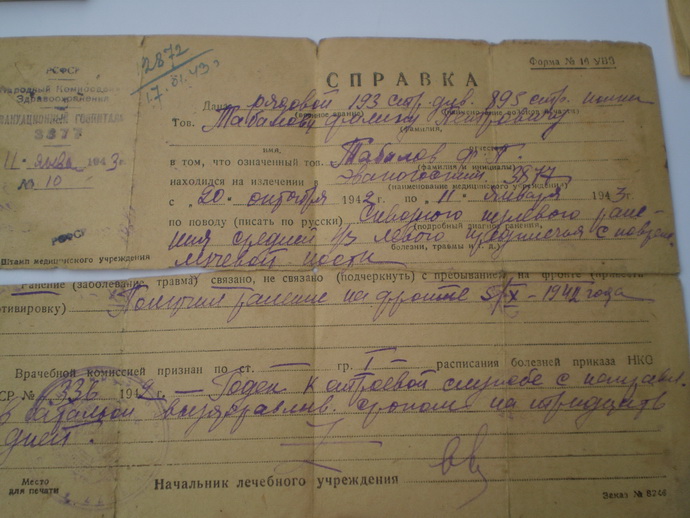 РСФСР
Народный Комиссариат
Здравоохранения
ЭВАКУАЦИОННЫЙ ГОСПИТАЛЬ
3877
11 января 1943 г.
№ 10
РСФСР
Штамп медицинского учреждения
2872
17.01.43 г.
Форма № 16 УВП
СПРАВКА
Дана рядовой 193 стр. див. 895 стр. полка
(воинское звание)
Тов. Табалову Петровичу
(фамилия,
имя,
отчество)
в том, что означенный тов. Табалов Ф. П.
(фамилия и инициалы)
находился на излечении Эвакогоспит. 3877
(наименование медицинского учреждения)
с „20„ октября 1942 г. по „11„ января 1943 г.
по поводу (писать по русски) Слепого пулевого ране-
(подробный диагноз ранения,
ния средней 1/3 левого предплечья с повреж.
болезни, травмы и т. д.)
локтевой кости
Ранение (заболевание, травма) связано, не связано (подчеркнуть) с пребыванием на фронте (привести
мотивировку) Получил ранение на фронте 5/X - 1942 года
Врачебной комиссией признан по ст. гр. I расписания болезней приказа НКО
СССР № 336 1942 г. — Годен к строевой службе с направл.
в батальон выздоравлив. сроком на тридцать
дней.
Место
для печати
Начальник лечебного учреждения
Заказ № 8746